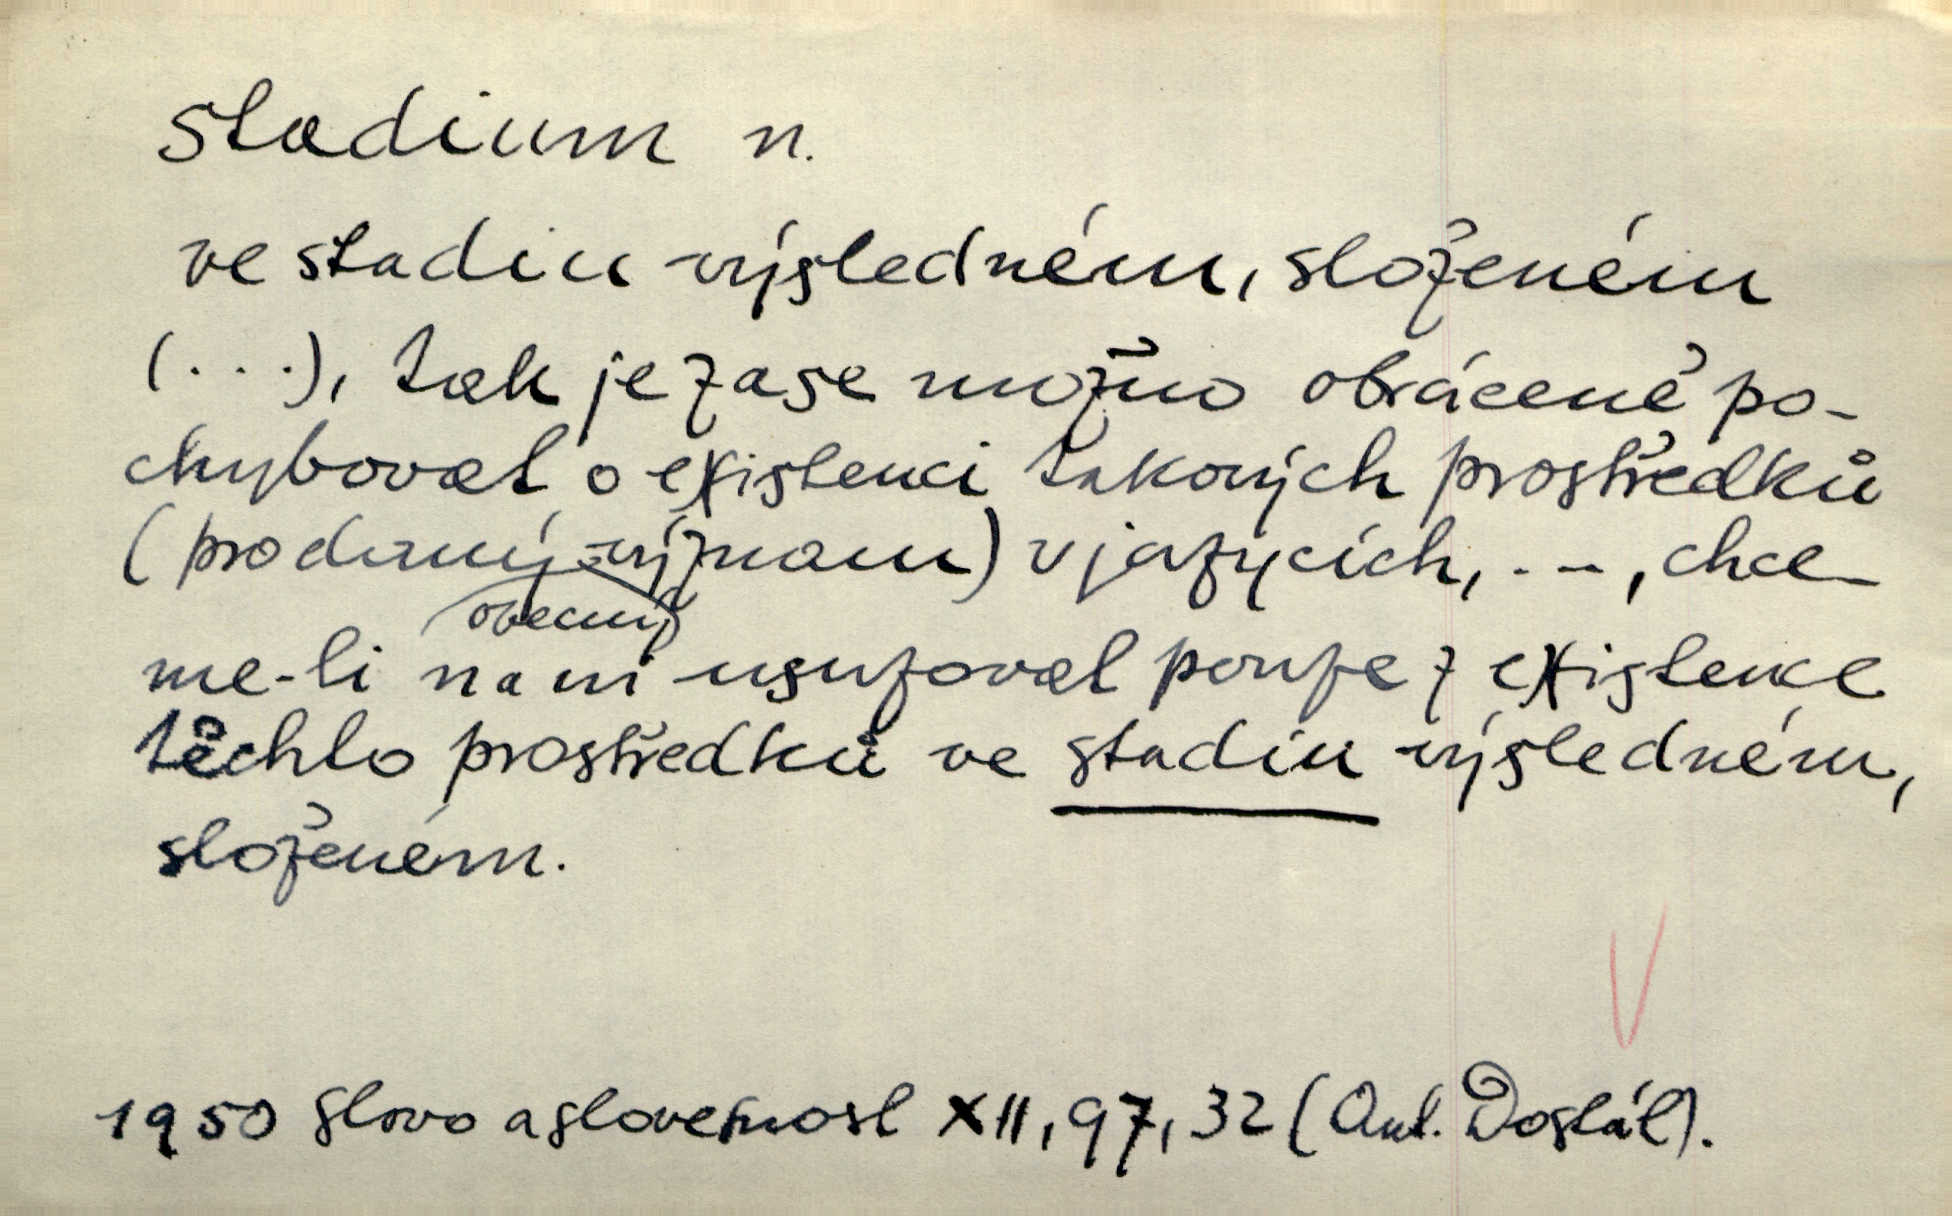 stadium n.
ve stadiu výsledném, složeném
(...), tak je zase možno obráceně po-
chybovat o existenci takových prostředků
(pro daný význam) v jazycích, ..., chce-
obecný
me-li na ni usuzovat pouze z existence
těchto prostředků ve stadiu výsledném,
složeném.
1950 Slovo a slovesnost XII, 97, 32 (Ant. Dostál).